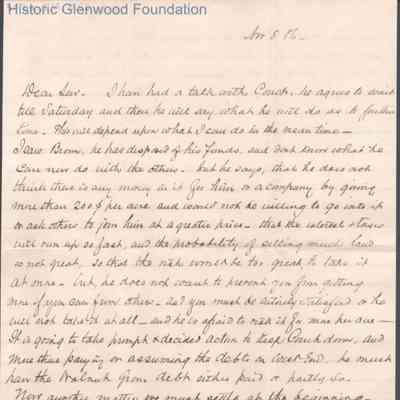 Historic Glenwood Foundation
Nov 5
Dear Sur. I han had a talk with Couch. he agrees to wait
till Saturday and then he will say what he will do as to further
time. This will depend upon what I can do in the mean time —
I saw Brom, he has disposed of his funds, and dont know what he
can now do with the others. but he says, that he does not
think there is any money in it for him or a company by going
more than 200 $ per acre and would not be willing to go into it
or ask others to join him at a greater price — that the interest & taxes
will run up so fast, and the probability of selling much land
so not great, so that the risk would be too great to take it
at more. but, he does not want to prevent you from getting
more if you can from others. and you must be entirely satisfied or he
will not take it at all — and he is afraid to risk it for more per acre —
It is going to take prompt & decided action to keep Couch down, and
more than paying or assuming the debts on West End. he must
have the Walnut Grove debt either paid or partly so.
Now another matter we must settle at the beginning —